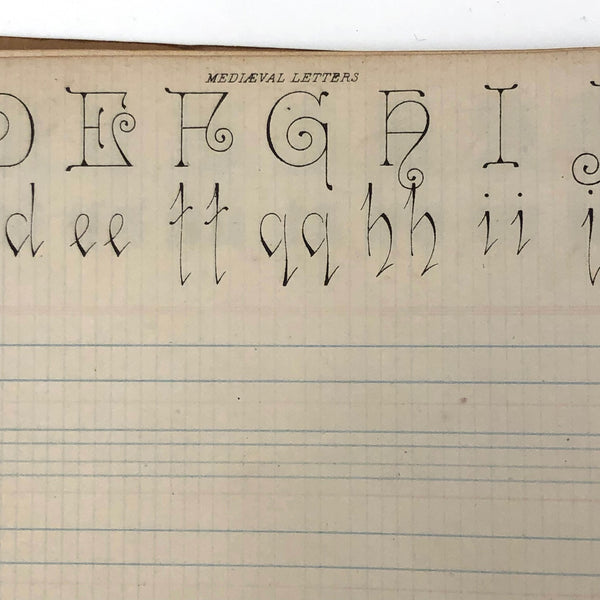 MEDIÆVAL LETTERS
D E F G H I J
d ee ff gg hh ii j